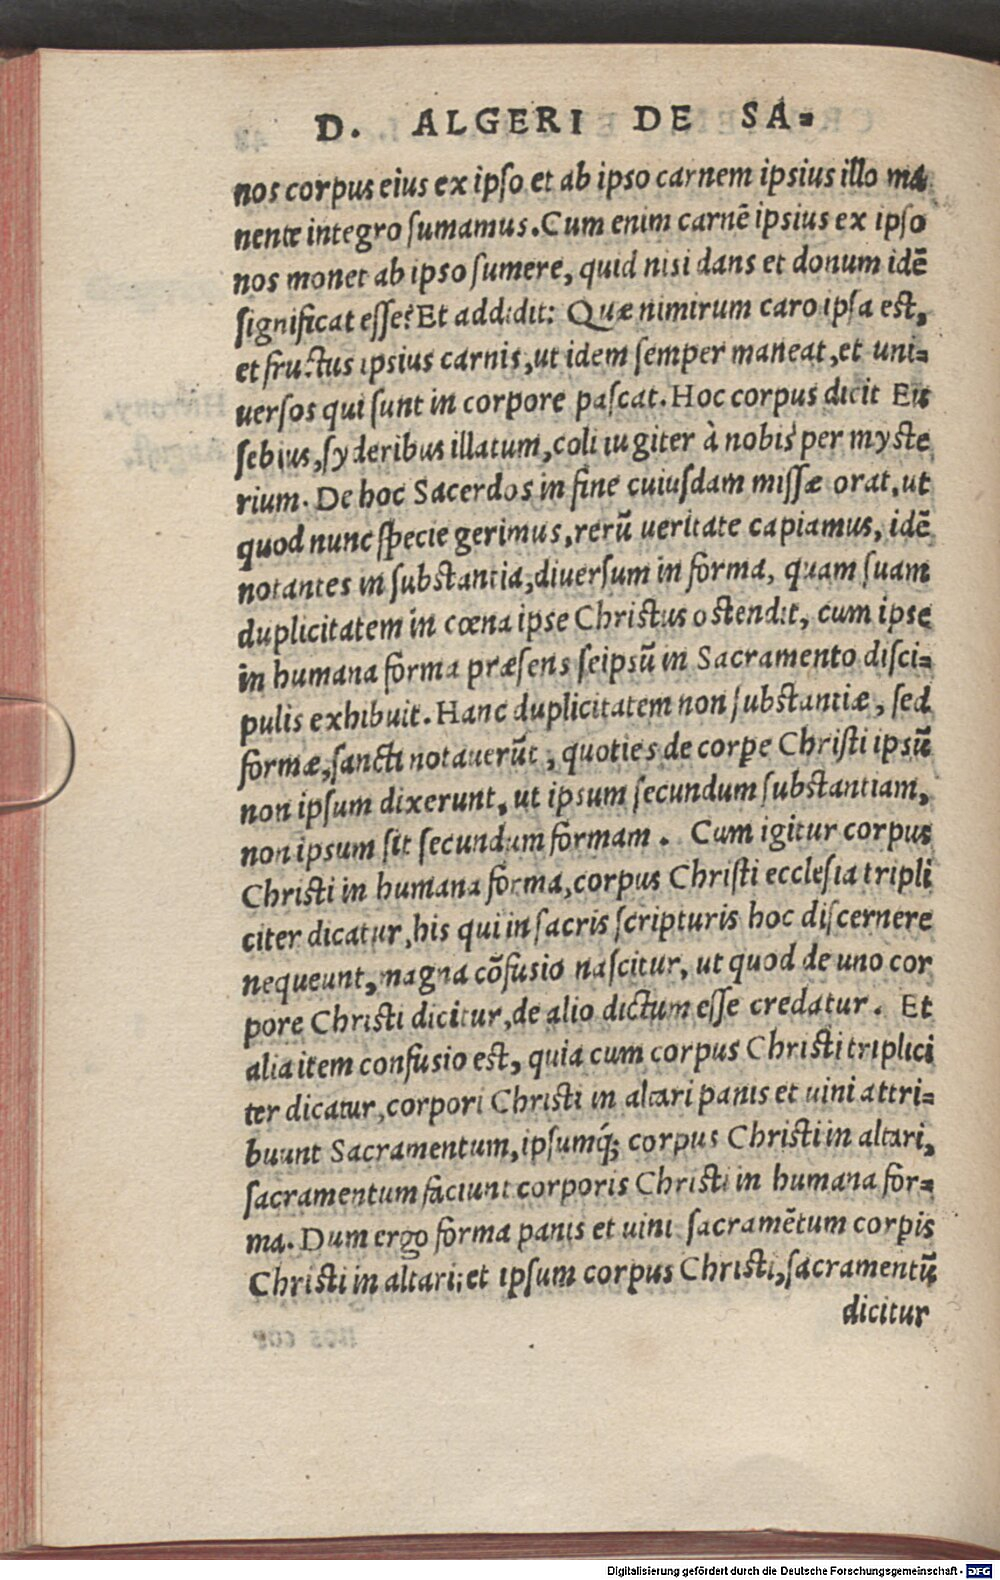 D. ALGERI DE SA-
nos corpus eius ex ipso et ab ipso carnem ipsius illo ma
nente integro sumamus. Cum enim carnē ipsius ex ipso
nos monet ab ipso sumere, quid nisi dans et donum idē
significat esse? Et addidit: Quæ nimirum caro ipsa est,
et fructus ipsius carnis, ut idem semper maneat, et uni-
uersos qui sunt in corpore pascat. Hoc corpus dicit Eu
sebius, syderibus illatum, coli iugiter à nobis per myste
rium. De hoc Sacerdos in fine cuiusdam missæ orat, ut
quod nunc specie gerimus, rerū ueritate capiamus, idē
notantes in substantia, diuersum in forma, quam suam
duplicitatem in cœna ipse Christus ostendit, cum ipse
in humana forma præsens seipsū in Sacramento disci-
pulis exhibuit. Hanc duplicitatem non substantiæ, sed
formæ, sancti notauerūt, quoties de corpe Christi ipsū
non ipsum dixerunt, ut ipsum secundum substantiam,
non ipsum sit secundum formam. Cum igitur corpus
Christi in humana forma, corpus Christi ecclesia tripli
citer dicatur, his qui in sacris scripturis hoc discernere
nequeunt, magna cōfusio nascitur, ut quod de uno cor
pore Christi dicitur, de alio dictum esse credatur. Et
alia item confusio est, quia cum corpus Christi triplici
ter dicatur, corpori Christi in altari panis et uini attri-
buunt Sacramentum, ipsumq́; corpus Christi in altari,
sacramentum faciunt corporis Christi in humana for-
ma. Dum ergo forma panis et uini sacramētum corpis
Christi in altari; et ipsum corpus Christi, sacramentū
dicitur
Digitalisierung gefördert durch die Deutsche Forschungsgemeinschaft - DFG